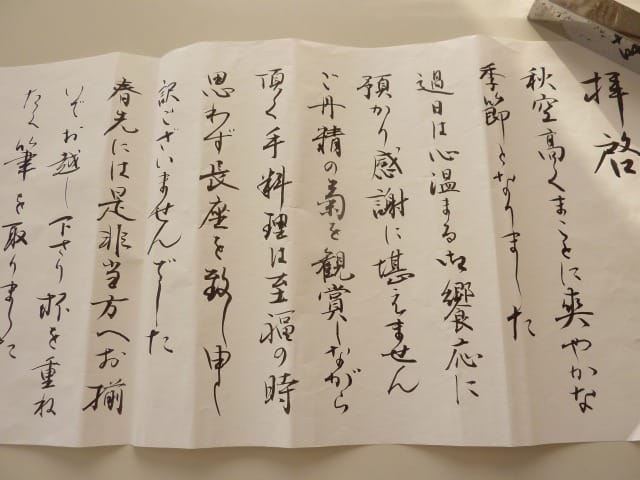 拝啓
秋空高くまことに爽やかな
季節となりました
過日は心温まる御饗応に
預かり感謝に堪えません
ご丹精の菊を観賞しながら
頂く手料理は至福の時
思わず長座を致し申し
訳ございませんでした
春先には是非当方へお揃
いでお越し下さり杯を重ね
たく筆を取りました